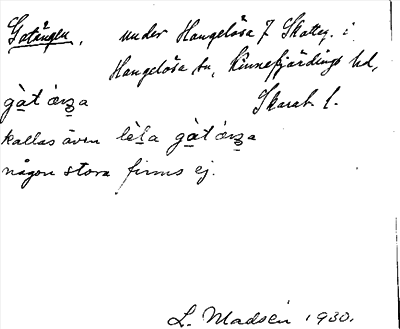 Gatängen, under Hangelösa 7 Skatteg. i
Hangelösa sn, Kinnefjärdings hd,
Skarab. l.
gàt æŋa
kallas även lèsa gàt æŋa
någon stora finns ej.
L. Madsén 1930.